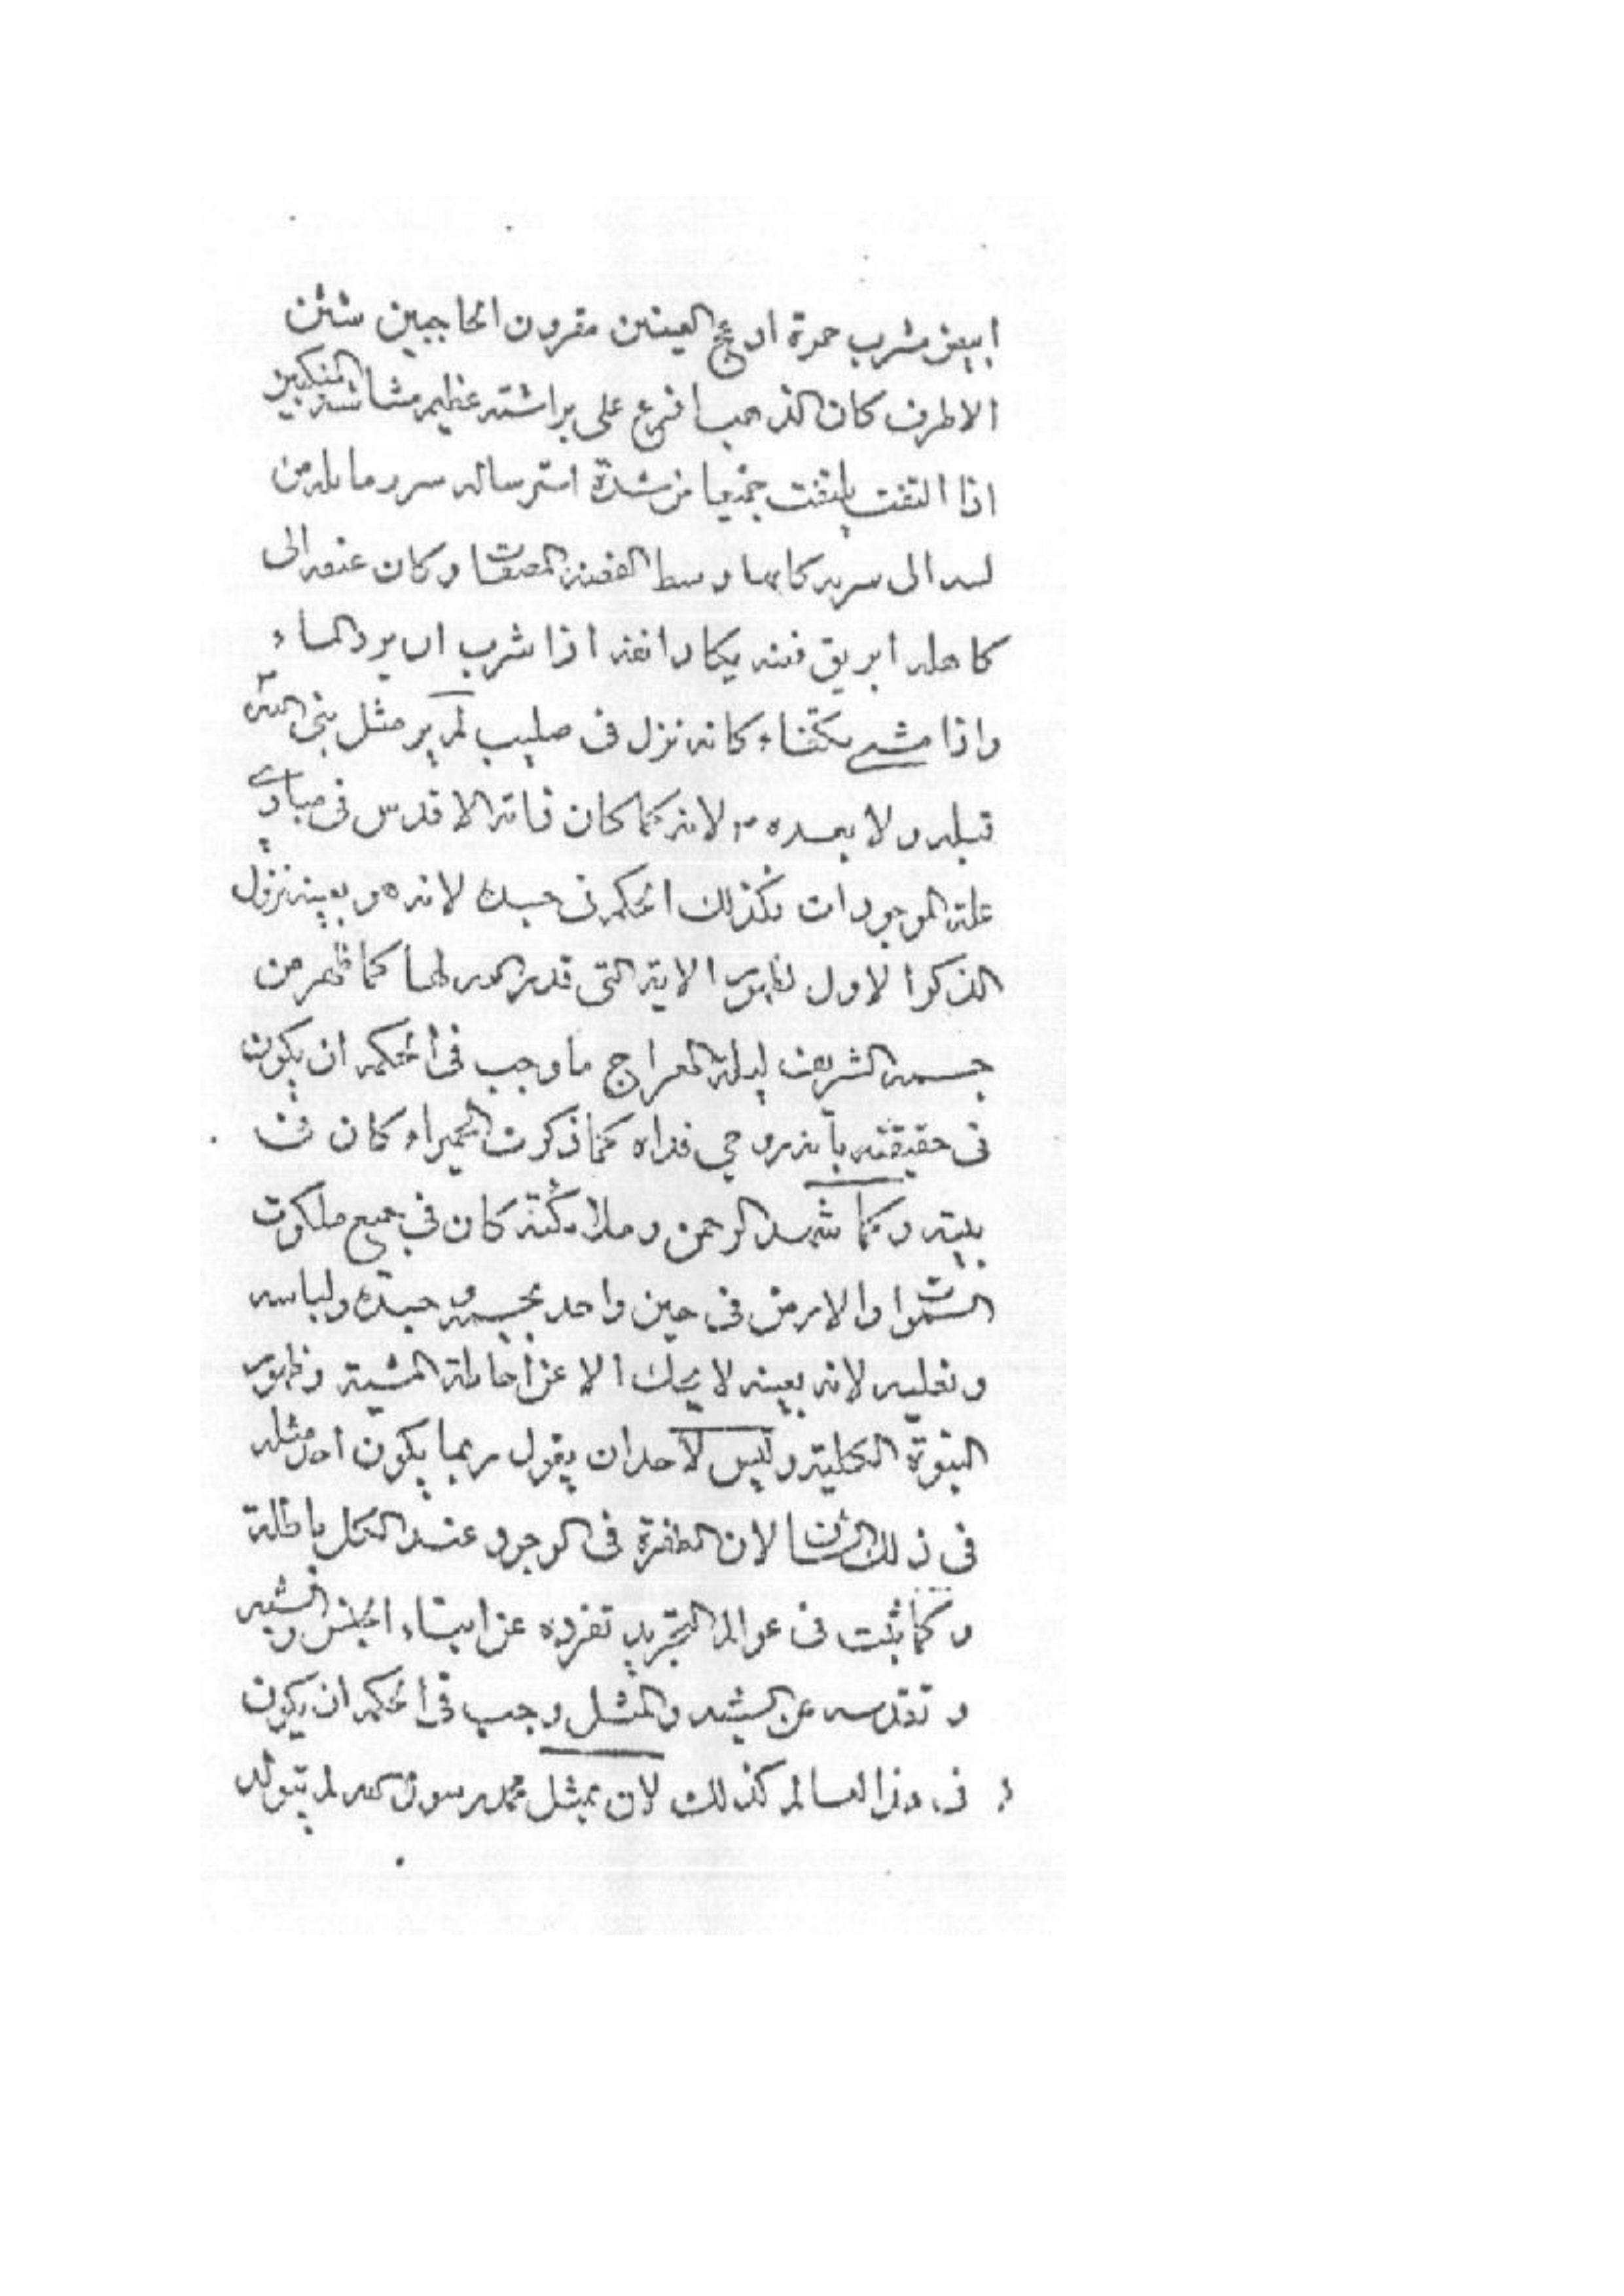 ابيض مشرب حمرة ادعج العينين مقرون الحاجبين شثن
الاطرف كان الذهب افرغ على براثنه عظيم مشاشة المنكبين
اذا التفت يلتفت جميعا من شدة استرساله سر وما بله من
لبه الى سرته كانها وسط الفضة المصفات وكان عنقه الى
كاهله ابريق فضه يكاد انفه اذا شرب ان يرد الماء
واذا مشى تكفاء كانه نزل فى صبيب لم ير مثل نبى الله
قبله ولا بعده ص لانه كما كان ذاته الاقدس فى مبادى
علة الموجودات فكذلك الحكم فى جسده لانه هو بعينه نزل
الذكر الاول لظهور الاية التى قدر الله لها كما ظهر من
جسمه الشريف ليلة المعراج ما وجب فى الحكم ان يكون
فى حقيقته بانه روحي فداه كما ذكرت الحميراء كان فى
بيته وكما شهد الرحمن وملائكته كان في جميع ملكوت
السموات والارض فى حين واحد بجسمه وجسده ولباسه
ونعليه لانه بعينه لا يحك الا عن احاطة المشية وظهور
النبوة الكلية وليس لاحد ان يقول ربما يكون احد مثله
فى ذلك الشان لان الطفرة فى الوجود عند الكل باطلة
وكما ثبت فى عوالم التجريد تفرده عن ابناء الجنس والشبه
و تقدسه عن الشبه والمثل وجب فى الحكم ان يكون
فى هذا العالم كذلك لان بمثل محمد رسول الله لم يتولد